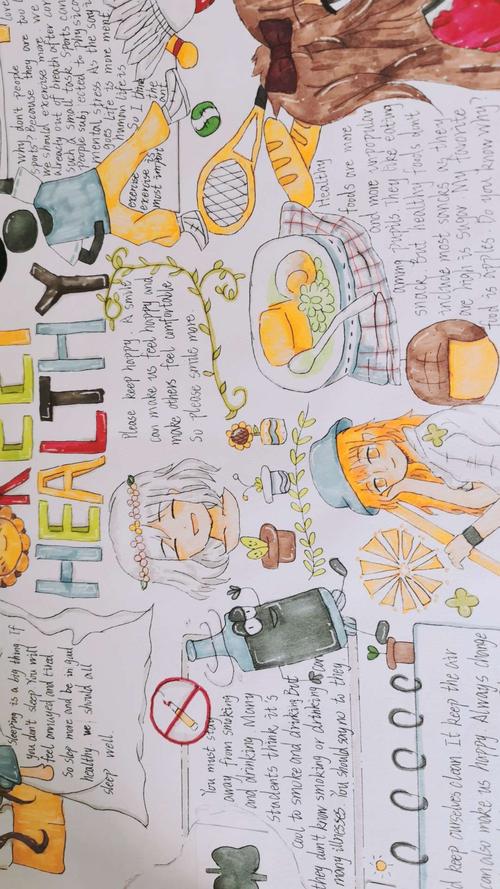 Why don't people
sports? Because they are too
we should exercise more.
already out of breath after
such a small task. Sports can
people subjected to physical
mental stress. As the saying
goes "Life is more ment
Human life is
So I think
the
art
exercise
exercise is
most import
KEE
HEALTHY
Please keep happy. A smile
can make us feel happy and
make others feel comfortable
So please smile more
Healthy
foods are more
and more unpopular
among pupils. They like eating
snack. But healthy food don't
include most snacks as they
are high is sugar. My favorite
food is apples. Do you know why?
Sleeping is a big thing. If
you don't sleep You will
feel annoyed and tired
So sleep more and be in good
healthy we should all
sleep well.
You must stay
away from smoking
and drinking. Many
students think it's
cool to smoke and drinking But
they don't know smoking or drinking can
many illnesses. You should say no to they
keep ourselves clean. It keep the air
can also make us happy. Always change